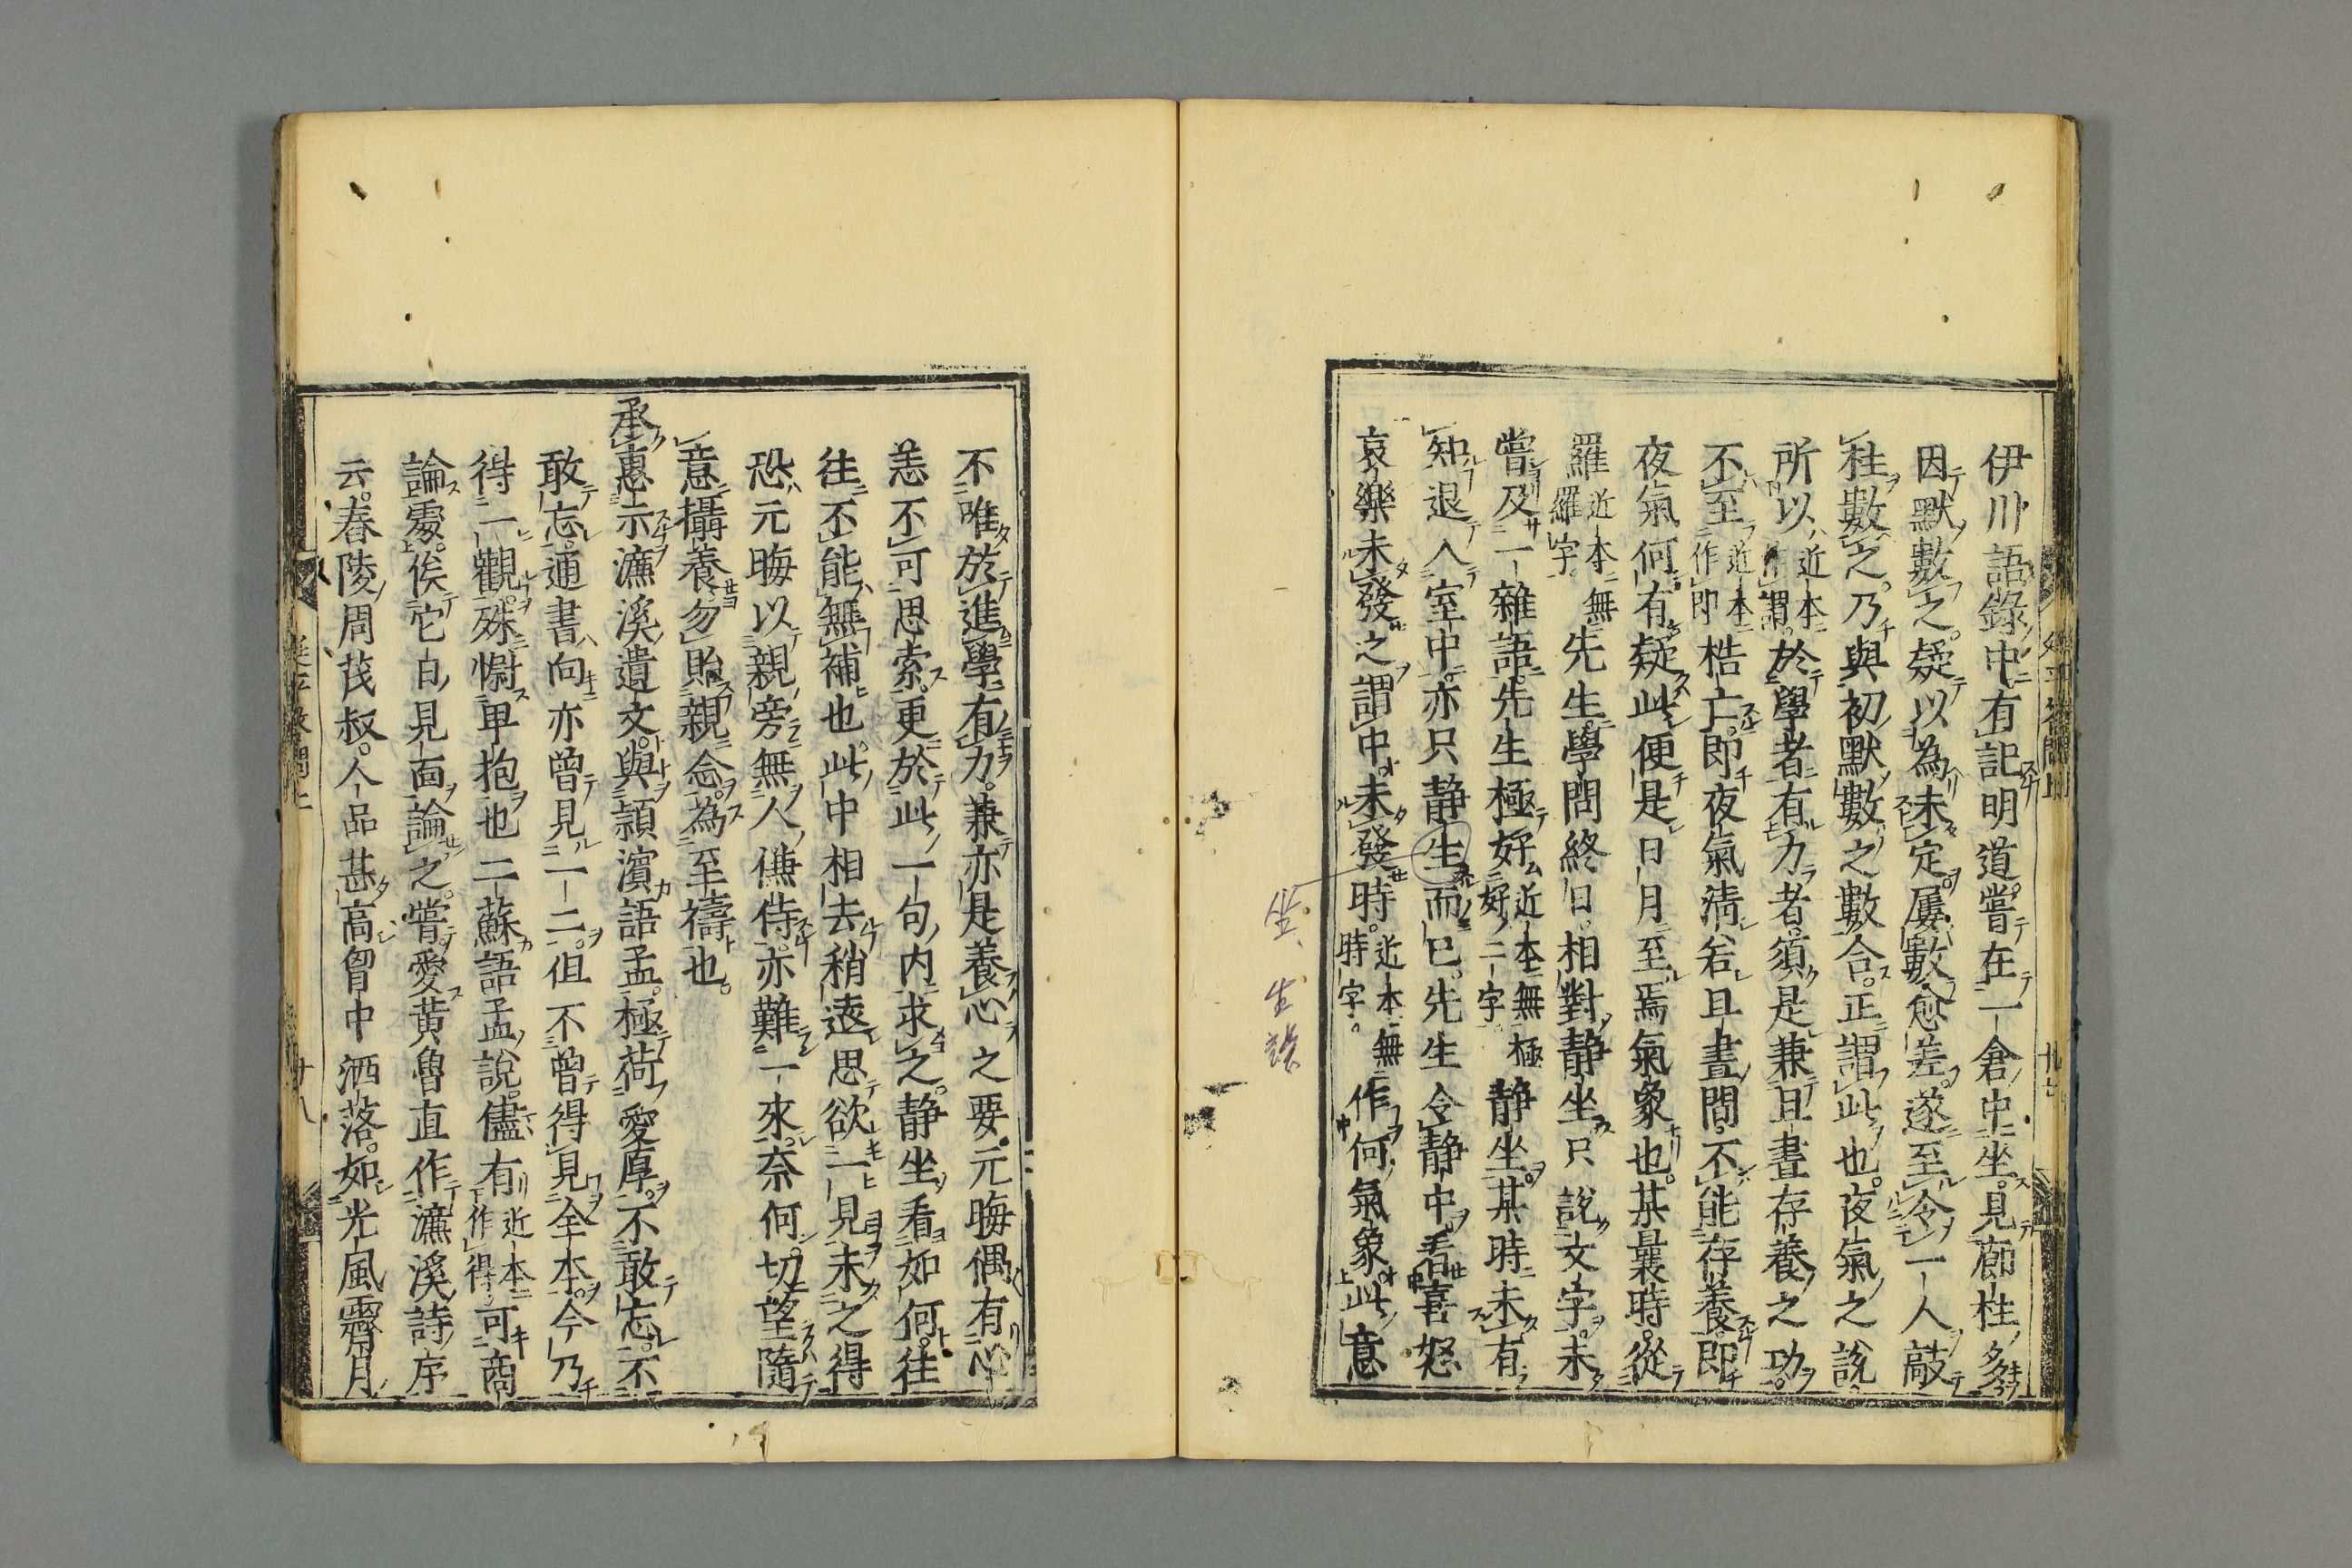 伊川語錄中有記明道嘗在一倉中坐見廊柱多
因默數之疑以為未定屢數愈差遂至令一人敲
柱數之乃與初默數之數合正謂此也夜氣之說
所以近本作謂於學者有力者須是兼旦晝存養之功
不至近本作即梏亡即夜氣淸若旦晝間不能存養即
夜氣何有疑此便是日月至焉氣象也某曩時從
羅近本無羅字先生學問終日相對静坐只說文字未
嘗及一雜語先生極好近本無極好二字静坐某時未有
知退入室中亦只静生而已先生令静中看喜怒
哀樂未發之謂中未發時近本無時字作何氣象此意
坐
生誤
不唯於進學有力兼亦是養心之要元晦偶有心
恙不可思索更於此一句内求之静坐看如何往
往不能無補也此中相去稍遠思欲一見未之得
恐元晦以親旁無人傔侍亦難一來奈何切望隨
意攝養勿貽親念為至禱也
承惠示濂溪遺文與潁濵語孟極荷愛厚不敢忘不
敢忘通書向亦曾見一二但不曾得見全本今乃
得一觀殊慰卑抱也二蘇語孟說儘有近本作得可商
論處俟它日見面論之嘗愛黃魯直作濂溪詩序
云舂陵周茂叔人品甚高胷中洒落如光風霽月
延平答問上
廿八